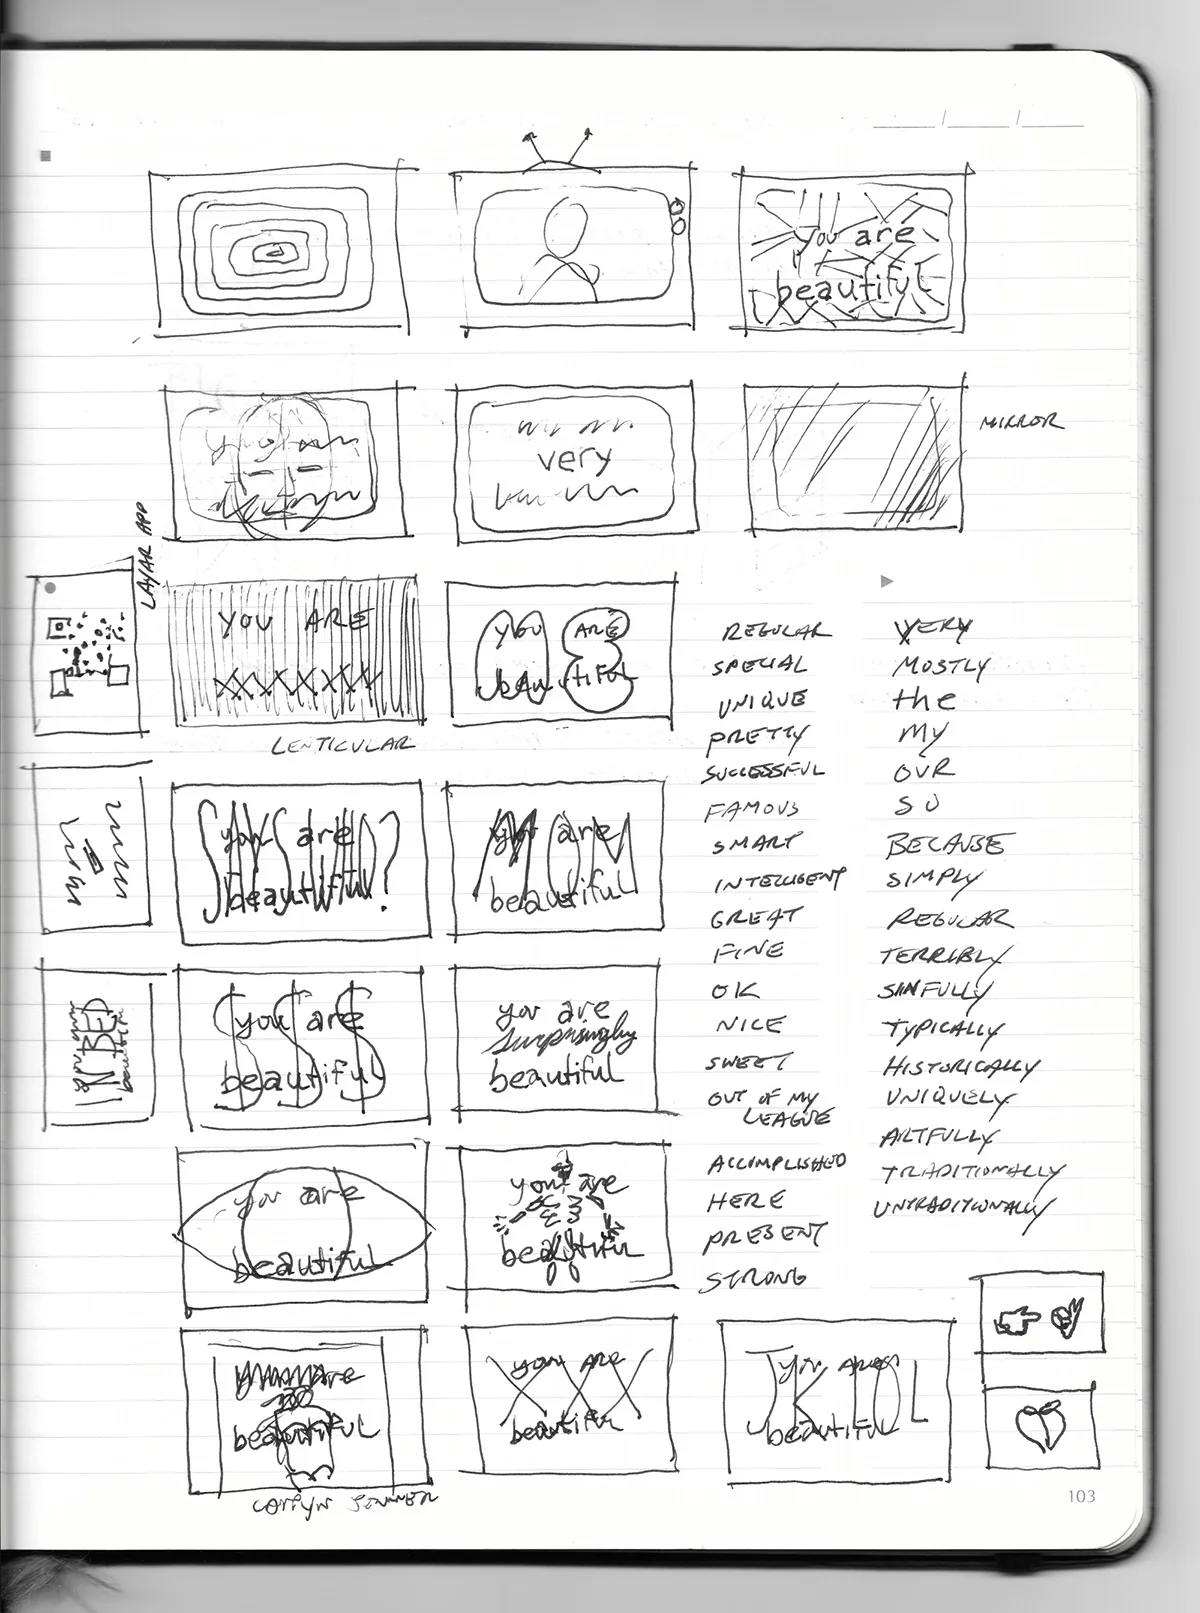 you are
beautiful
very
MIRROR
LAYAR APP
YOU ARE
XXXXXXX
LENTICULAR
you ARE
beautiful
you are
beautiful
?
MOM
you are
beautiful
$$$
you are
beautiful
you are
surprisingly
beautiful
you are
beautiful
you are
beautiful
are
beautiful
you ARE
beautiful
XXX
JK LOL
you ARE
beautiful
REGULAR
SPECIAL
UNIQUE
PRETTY
SUCCESSFUL
FAMOUS
SMART
INTELLIGENT
GREAT
FINE
OK
NICE
SWEET
OUT OF MY
LEAGUE
ACCOMPLISHED
HERE
PRESENT
STRONG
VERY
MOSTLY
the
MY
OUR
SO
BECAUSE
SIMPLY
REGULAR
TERRIBLY
SINFULLY
TYPICALLY
HISTORICALLY
UNIQUELY
ARTFULLY
TRADITIONALLY
UNTRADITIONALLY
103